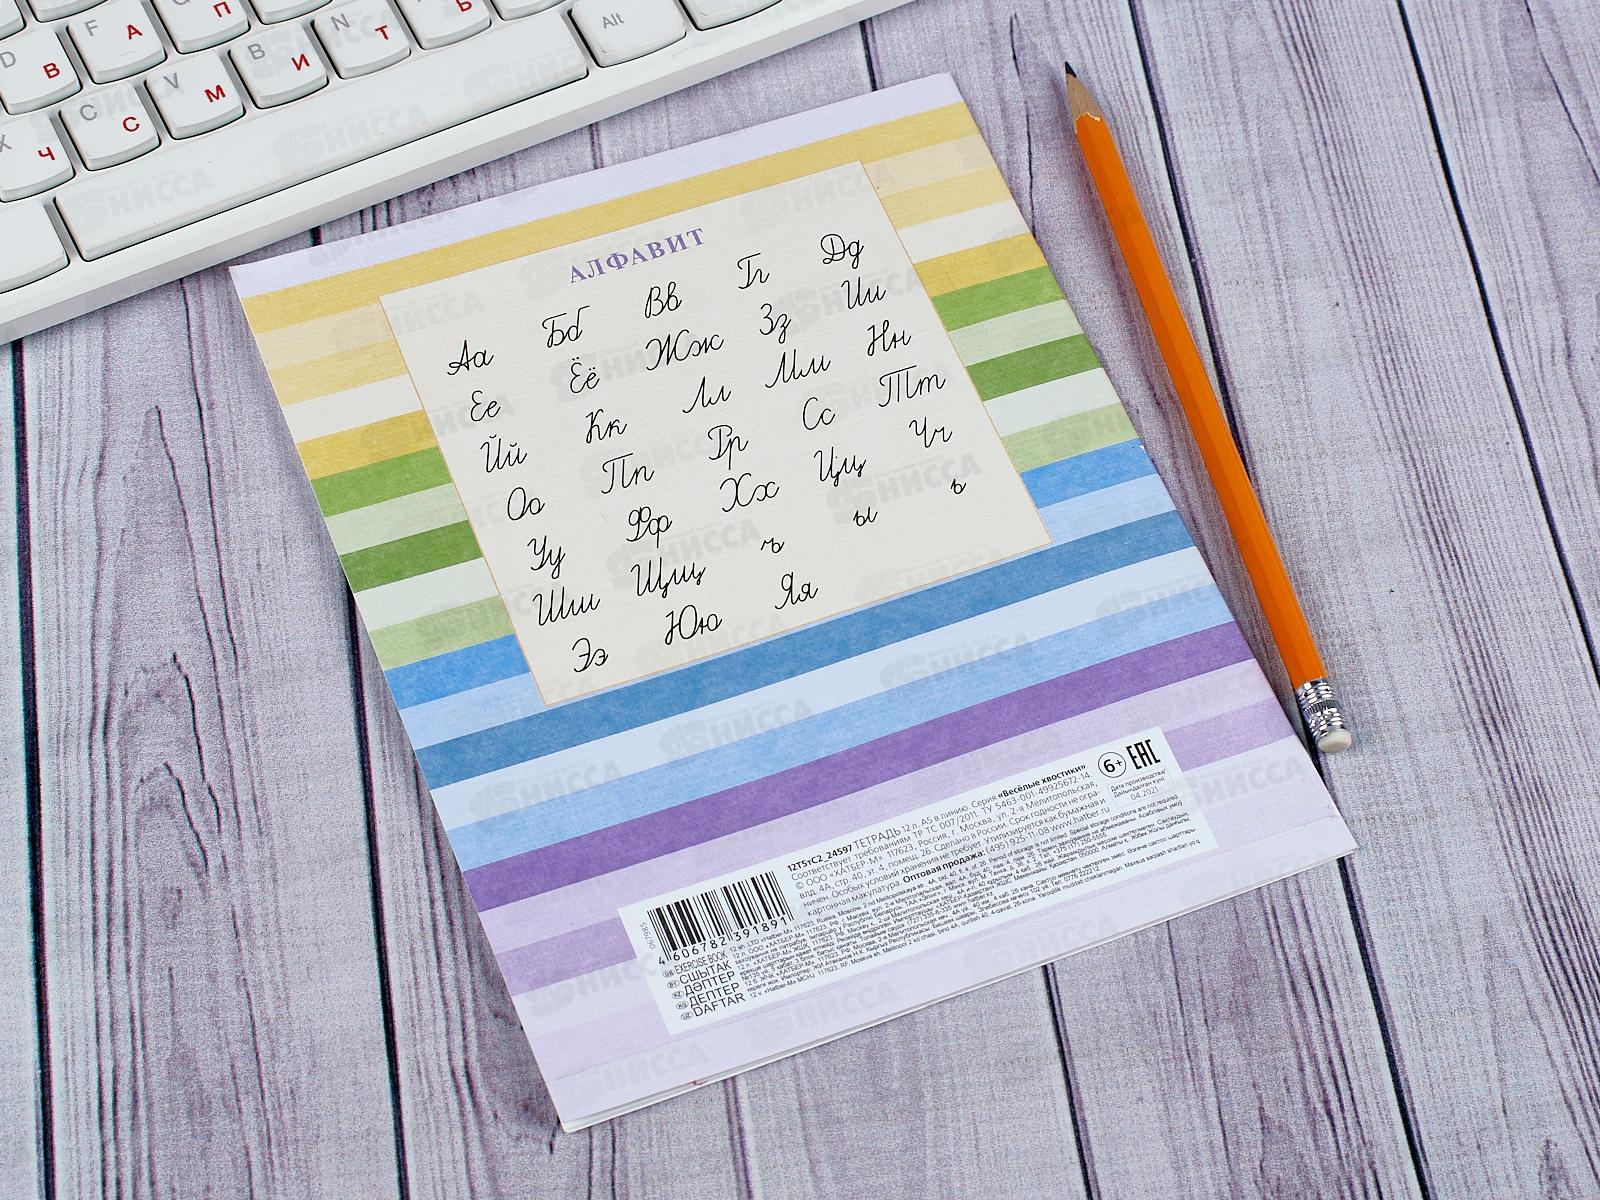 D В
F А
П
Ь
X Ч
C С
V М
B И
N Т
Alt
АЛФАВИТ
Аа Бб Вв Гг Дд
Ее Ёё Жж Зз Ии
Йй Кк Лл Мм Нн
Оо Пп Рр Сс Тт
Уу Фф Хх Цц Чч
Шш Щщ ъ ы ь
Ээ Юю Яя
12Т5тС2_24597 ТЕТРАДЬ 12 л. А5 в линию. Серия «Весёлые хвостики».
Соответствует требованиям ТР ТС 007/2011. ТУ 5463-001-49925672-14.
© ООО «ХАТБЕР-М» 117623, Россия, г. Москва, ул. 2-я Мелитопольская,
влд. 4А, стр. 40, эт. 4, помещ. 26. Сделано в России. Срок годности не огра-
ничен. Особых условий хранения не требует. Утилизируется как бумажная и
картонная макулатура. Оптовая продажа: (495) 925-11-08 www.hatber.ru
6+ EAC
Дата производства/
04.2021
067985
4 606782 391891
GB EXERCISE BOOK
BY СШЫТАК
KZ ДӘПТЕР
KG ДЕПТЕР
UZ DAFTAR
НИССА